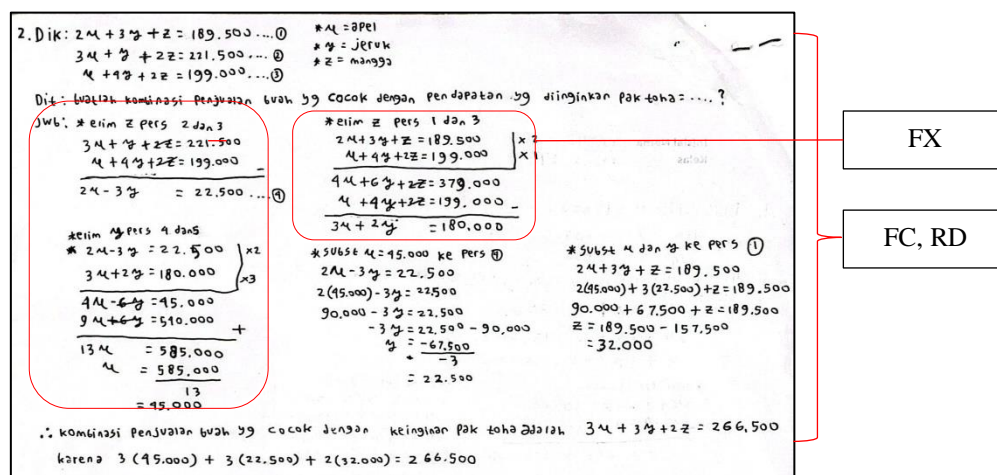 2. Dik: 2x + 3y + z = 189.500 .... ①
3x + y + 2z = 221.500 .... ②
x + 4y + 2z = 199.000 .... ③
* x = apel
* y = jeruk
* z = mangga
Dit : buatlah kombinasi penjualan buah yg cocok dengan pendapatan yg diinginkan pak toha = .... ?
Jwb : * elim z pers 2 dan 3
3x + y + 2z = 221.500
x + 4y + 2z = 199.000 -
2x - 3y = 22.500 .... ④
* elim z pers 1 dan 3
2x + 3y + z = 189.500 | x 2
x + 4y + 2z = 199.000 | x 1
4x + 6y + 2z = 379.000
x + 4y + 2z = 199.000 -
3x + 2y = 180.000
* elim y pers 4 dan 5
* 2x - 3y = 22.500 | x2
3x + 2y = 180.000 | x3
4x - 6y = 45.000
9x + 6y = 540.000 +
13x = 585.000
x = 585.000
13
= 45.000
* subst x = 45.000 ke pers ④
2x - 3y = 22.500
2(45.000) - 3y = 22.500
90.000 - 3y = 22.500
-3y = 22.500 - 90.000
y = -67.500
-3
= 22.500
* subst x dan y ke pers ①
2x + 3y + z = 189.500
2(45.000) + 3(22.500) + z = 189.500
90.000 + 67.500 + z = 189.500
z = 189.500 - 157.500
= 32.000
∴ kombinasi penjualan buah yg cocok dengan keinginan pak toha adalah 3x + 3y + 2z = 266.500
karena 3(45.000) + 3(22.500) + 2(32.000) = 266.500
FX
FC, RD